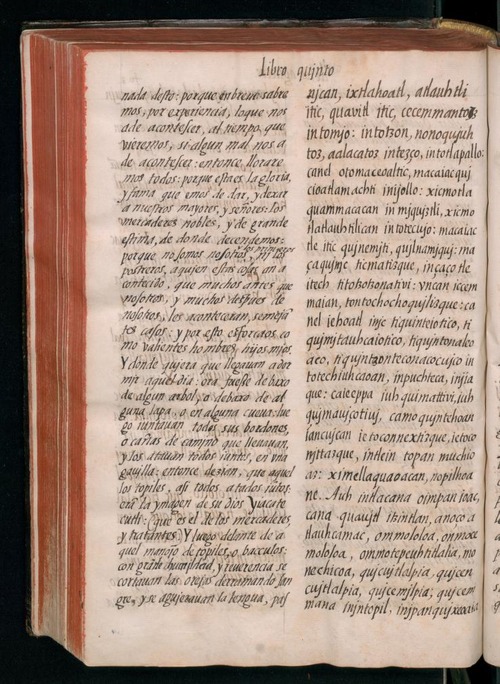 Libro quinto
nada desto: porque en breue sabre
mos, por experiencia, lo que nos
a de acontescer, al tiempo, que
vieremos, si algun mal nos a
de acontescer: entonce, llorare
mos todos: porque esta es la gloria,
y fama que emos de dar, y dexar
a nuestros mayores, y señores: los
mercaderes nobles, y de grande
estima, de donde decendemos:
porque no somos nosotros,
postreros, a quien estas cosas an a
contecido, que muchos antes que
nosotros, y muchos despues de
nosotros, les aconteceran, semejã
tes casos: y por esto esforçaos co
mo valientes hombres, hijos mios.
Y donde quiera que llegauan a dor
mir aquel dia: ora fuesse debaxo
de algun arbol, o debaxo de al
guna lapa, o en alguna cueua: lue
go juntauan todos sus bordones,
o cañas de camino que lleuauan,
y los atauan todos juntos, en vna
gauilla: entonce dezian, que aquel
los topiles, asi todos atados jutos:
era la ymagen de su dios Yiacate
cutli: (que es el de los mercaderes,
y tratantes) Y luego delante de a
quel manojo de topiles, o baculos:
con grãde humildad, y reuerencia se
cortauan las orejas derramando san
gre, y se agujerauan la lengua, pas
vican, ixtlahoatl, atlauhtli
itic, quavitl itic, cecemmantoz
in tomjo: in totzon, nonoqujuh
toz, aalacatoz in tezço, in totlapallo:
canel otomaceoaltic, macaiac quj
cioatlamachti inijollo: xicmotla
quammacacan in mjqujztli, xicmo
tlatlauhtilican in totecujo: macaiac
tle itic qujnemjti, qujlnamjquj: ma
ca qujme ticmatizque, in çaço tle
itech titotzotzonativi: yncan iccem
maian, tontochochoqujlizque: ca
nel iehoatl inje tiquinteiotico, ti
qujmjtauhcaiotico, tiquyntonaleo
aco, tiquintzontecomacocujco in
totechiuhcaoan, in puchteca, in jia
que: ca ieeppa iuh quimattivi, iuh
qujmaujotiuj, camo quintehoan
iancujcan ie toconnextizque, ie toco
mjttazque, in tlein topan muchio
az: ximellaquaoacan, nopilhoa
ne. Auh in tlacana oimpan ioac,
cana quaujtl itzintlan, anoco a
tlauhcamac, ommololoa, onmoce
mololoa, onmotepeuhtitlalia, mo
nechicoa, qujcujtlalpia, qujcen
cujtlalpia, qujcemjlpia; qujcem
mana injntopil, injpan qujxeoatia